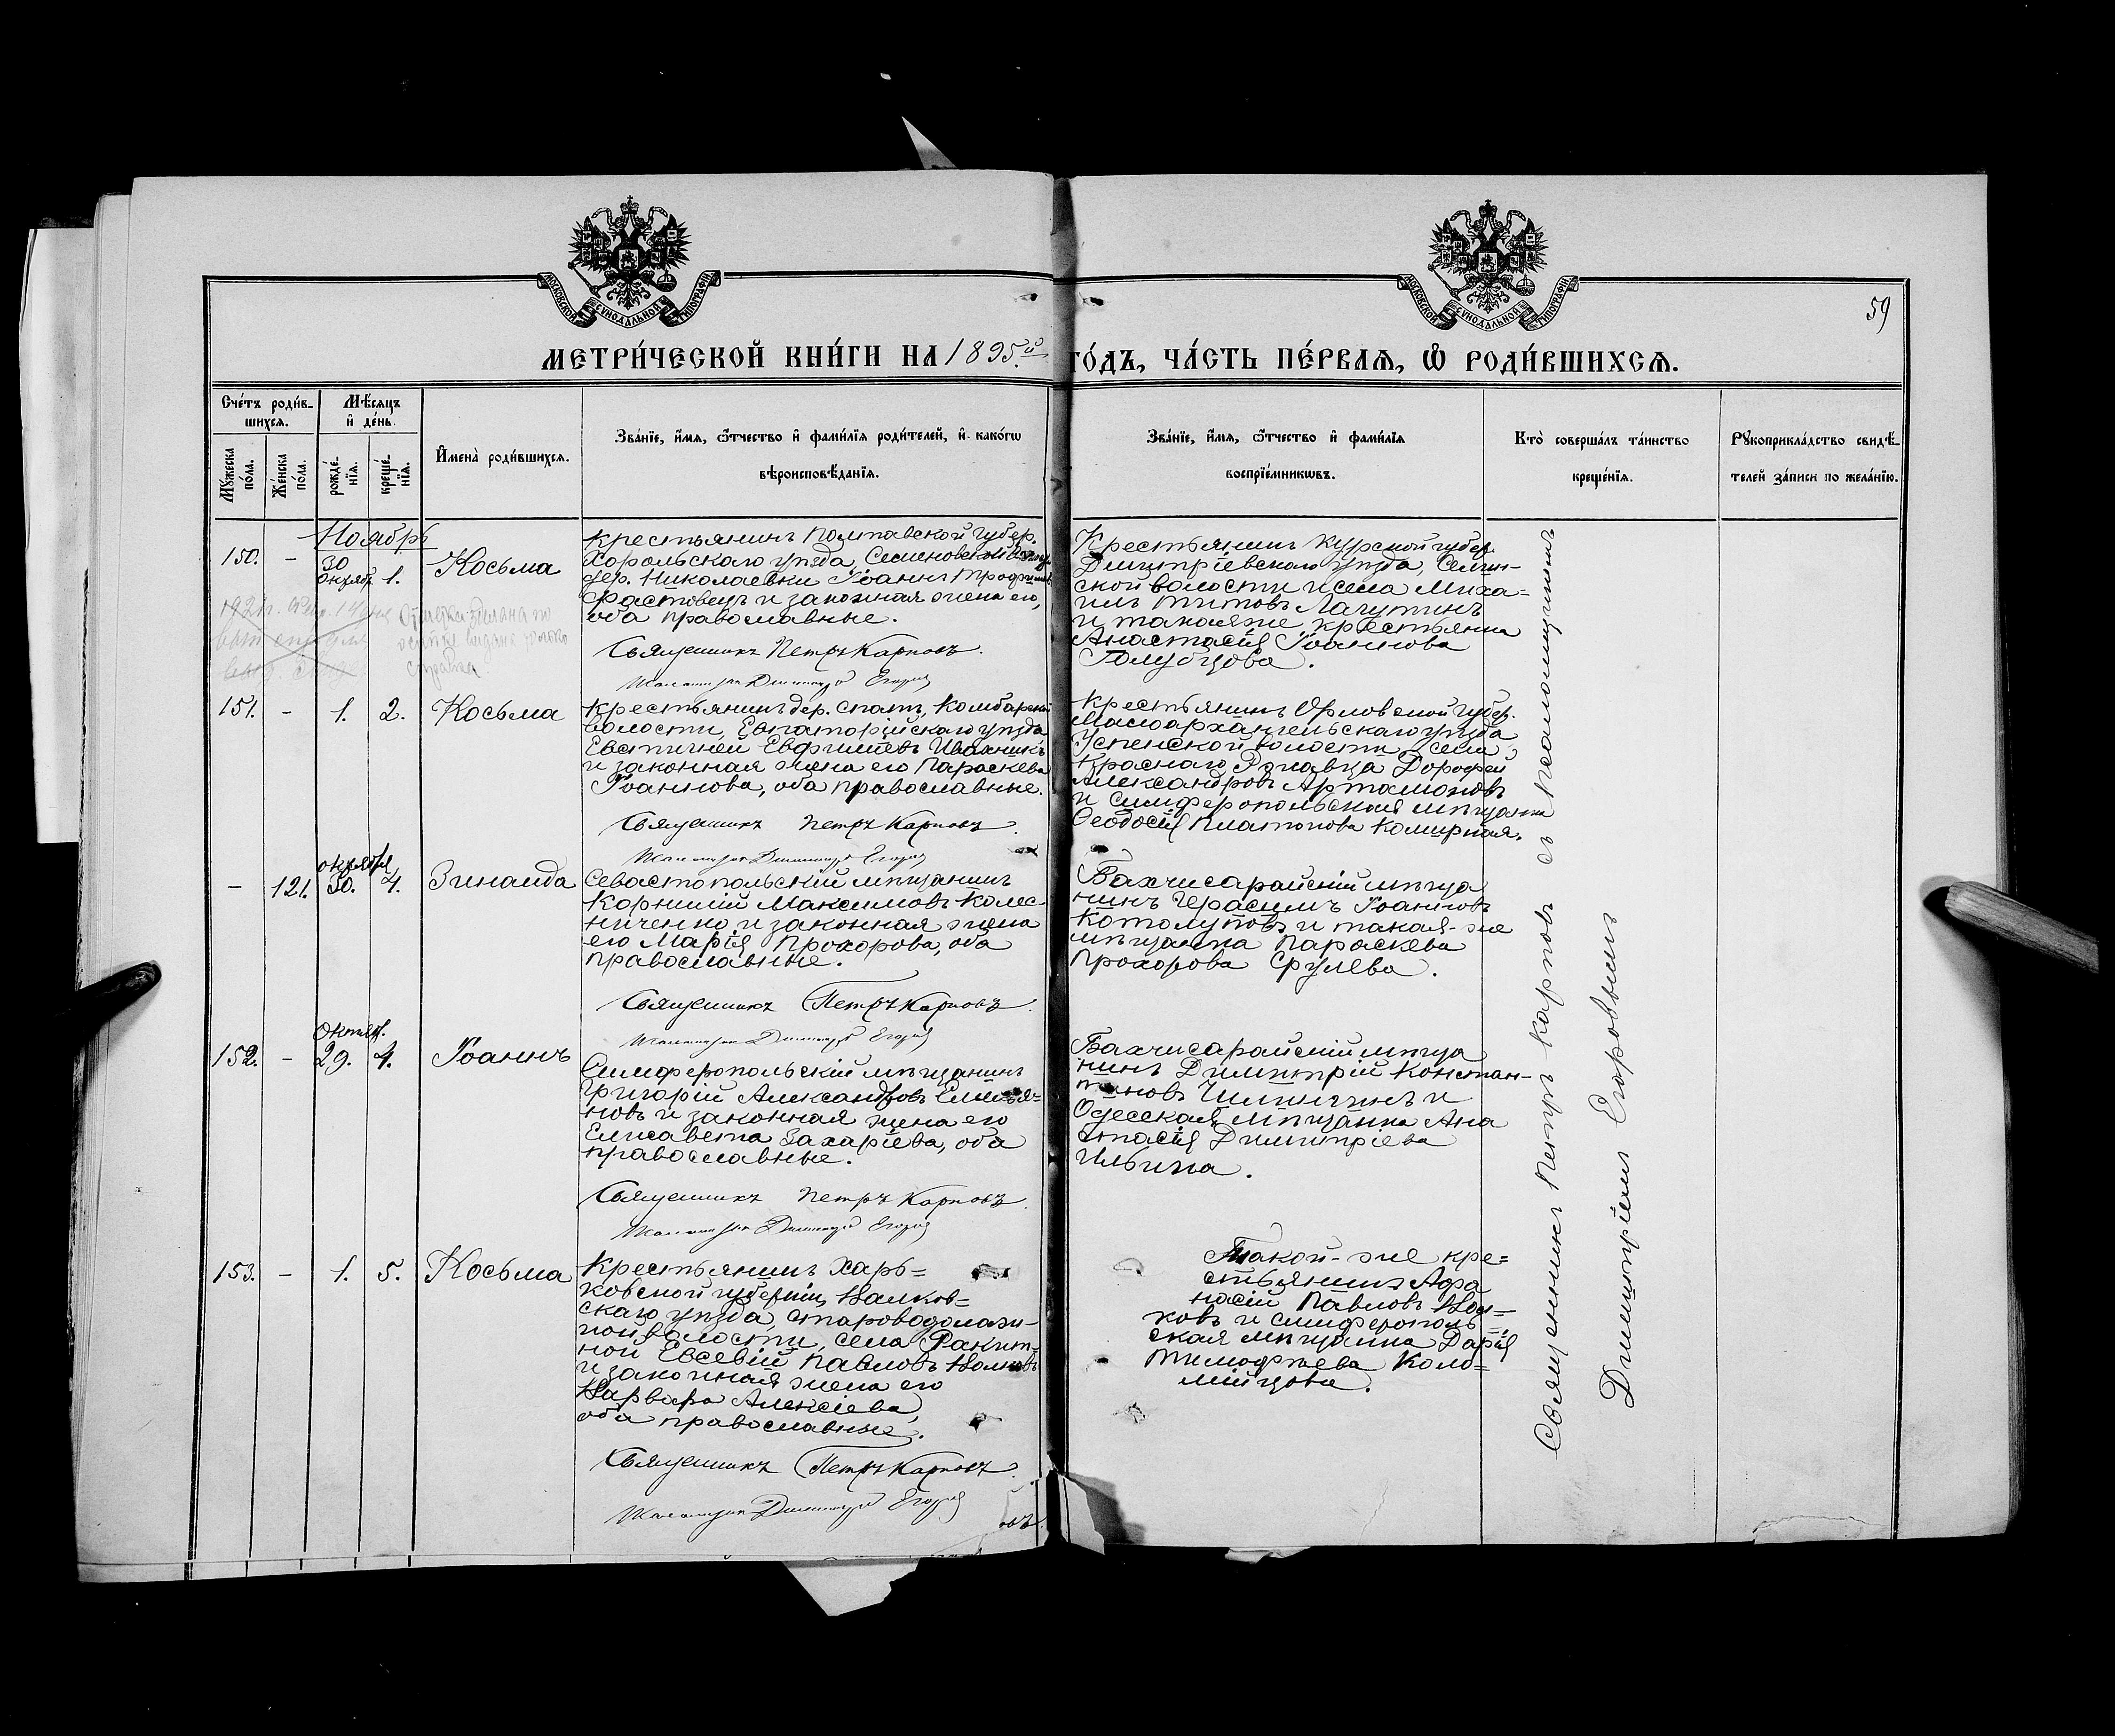 МОСКОВСКОЙ СѴНОДАЛЬНОЙ ТИПОГРАФІИ
МОСКОВСКОЙ СѴНОДАЛЬНОЙ ТИПОГРАФІИ
59
МЕТРИ́ЧЕСКОЙ КНИ́ГИ НА 1895й ГО́ДЪ, ЧА́СТЬ ПЕ́РВАѦ, Ѡ РОДИ́ВШИХСѦ.
Сче́тъ роди́в-
шихсѧ.
Мѣ́сѧцъ
и҆ де́нь.
Мꙋ́жеска по́ла.
Же́нска по́ла.
рожде́нїѧ.
креще́нїѧ.
И҆мена̀ роди́вшихсѧ.
Зва́нїе, и҆́мѧ, ѻ҆́тчество и҆ фами́лїѧ роди́телей, и҆ како́гѡ
вѣроисповѣ́данїѧ.
Зва́нїе, и҆́мѧ, ѻ҆́тчество и҆ фами́лїѧ
воспрїе́мникѡвъ.
Кто̀ соверша́лъ та́инство
креще́нїѧ.
Рꙋкоприкла́дство свидѣ́-
телей за́писи по жела́нїю.
Ноябрь
150. - 30 октяб. 1. Косьма
Крестьянинъ Полтавской губер.
Хорольскаго уѣзда, Семеновской волос.
дер. Николаевки Іоаннъ Трофимовъ
Фастовецъ и законная жена его,
оба православные.
Священникъ Петръ Карповъ.
Псаломщикъ Димитрій Егоровъ
Крестьянинъ Курской губер.
Димитріевскаго уѣзда, Селин-
ской волости и села Миха-
илъ Титовъ Лагутинъ
и такая же крестьянка
Анастасія Іоаннова
Голубцова.
151. - 1. 2. Косьма
Крестьянинъ дер. Спатъ, Комбарской
волости, Евпаторійскаго уѣзда
Евстигней Евфимовъ Иванникъ
и законная жена его Параскева
Іоаннова, оба православные.
Священникъ Петръ Карповъ.
Псаломщикъ Димитрій Егоровъ
Крестьянинъ Орловской губер.
Малоархангельскаго уѣзда
Успенской волости села
Краснаго Ржавца Дорофей
Александровъ Артамоновъ
и симферопольская мѣщанка
Ѳеодосія Платонова Комирная.
- 121. октября 30. 4. Зинаида
Севастопольскій мѣщанинъ
Корнилій Максимовъ Колес-
ниченко и законная жена
его Марія Прохорова, оба
православные.
Священникъ Петръ Карповъ
Псаломщикъ Димитрій Егоровъ
Бахчисарайскій мѣща
нинъ Герасимъ Іоанновъ
Котолуповъ и такая-же
мѣщанка Параскева
Прохорова Срулева.
152. - Октяб. 29. 4. Іоаннъ
Симферопольскій мѣщанинъ
Григорій Александровъ Емелья-
новъ и законная жена его
Елисавета Захаріева, оба
православные.
Священникъ Петръ Карповъ
Псаломщикъ Димитрій Егоровъ
Бахчисарайскій мѣща
нинъ Димитрій Констан-
тиновъ и
Одесская мѣщанка Ана
стасія Димитріева
Ильина.
153. - 1. 5. Косьма
Крестьянинъ Харь=
ковской губерніи, Валков=
скаго уѣзда, староводолаж-
ной волости, села Ракит-
ной Евсевій Павловъ Волковъ
и законная жена его
Варвара Алексіева,
оба православные.
Священникъ Петръ Карповъ.
Псаломщикъ Димитрій Егоровъ
Такой-же кре=
стьянинъ Афа
насій Павловъ Вол=
ковъ и симферополь=
ская мѣщанка Дарія
Тимофеева Коло=
мійцова.
Священникъ Петръ Карповъ съ псаломщикомъ
Димитріемъ Егоровымъ